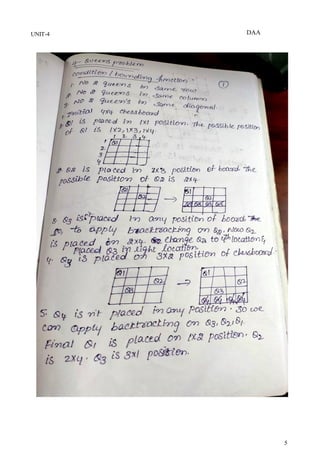 UNIT-4
DAA
4- Queens problem
condition / bounding function
1. No 2 queen's in same row
2. No 2 queen's in same column
3. No 2 queen's in same diagonal
1. Initial 4x4 chessboard
2. Q1 is placed in 1x1 position. The possible position
of Q1 is 1x2, 1x3, 1x4
1 2 3 4
1 Q1
2
3
4
2. Q2 is placed in 2x3 position of board. The
possible position of Q2 is 2x4.
Q1
Q2
Q1
Q2
Q3 Q3 Q3 Q3
3. Q3 is placed in any position of board. The
to apply backtracking on Q2. Now Q2
is placed in 2x4. change Q2 to 4th location &
Placed Q3 in right location.
4. Q3 is placed on 3x2 position of chessboard.
Q1
Q2
Q3
Q1
Q2
Q3
Q4 Q4 Q4 Q4
5. Q4 is n't placed in any position. So we
can apply backtracking on Q3, Q2, Q1.
Final Q1 is placed on 1x2 position. Q2
is 2x4. Q3 is 3x1 position.
5